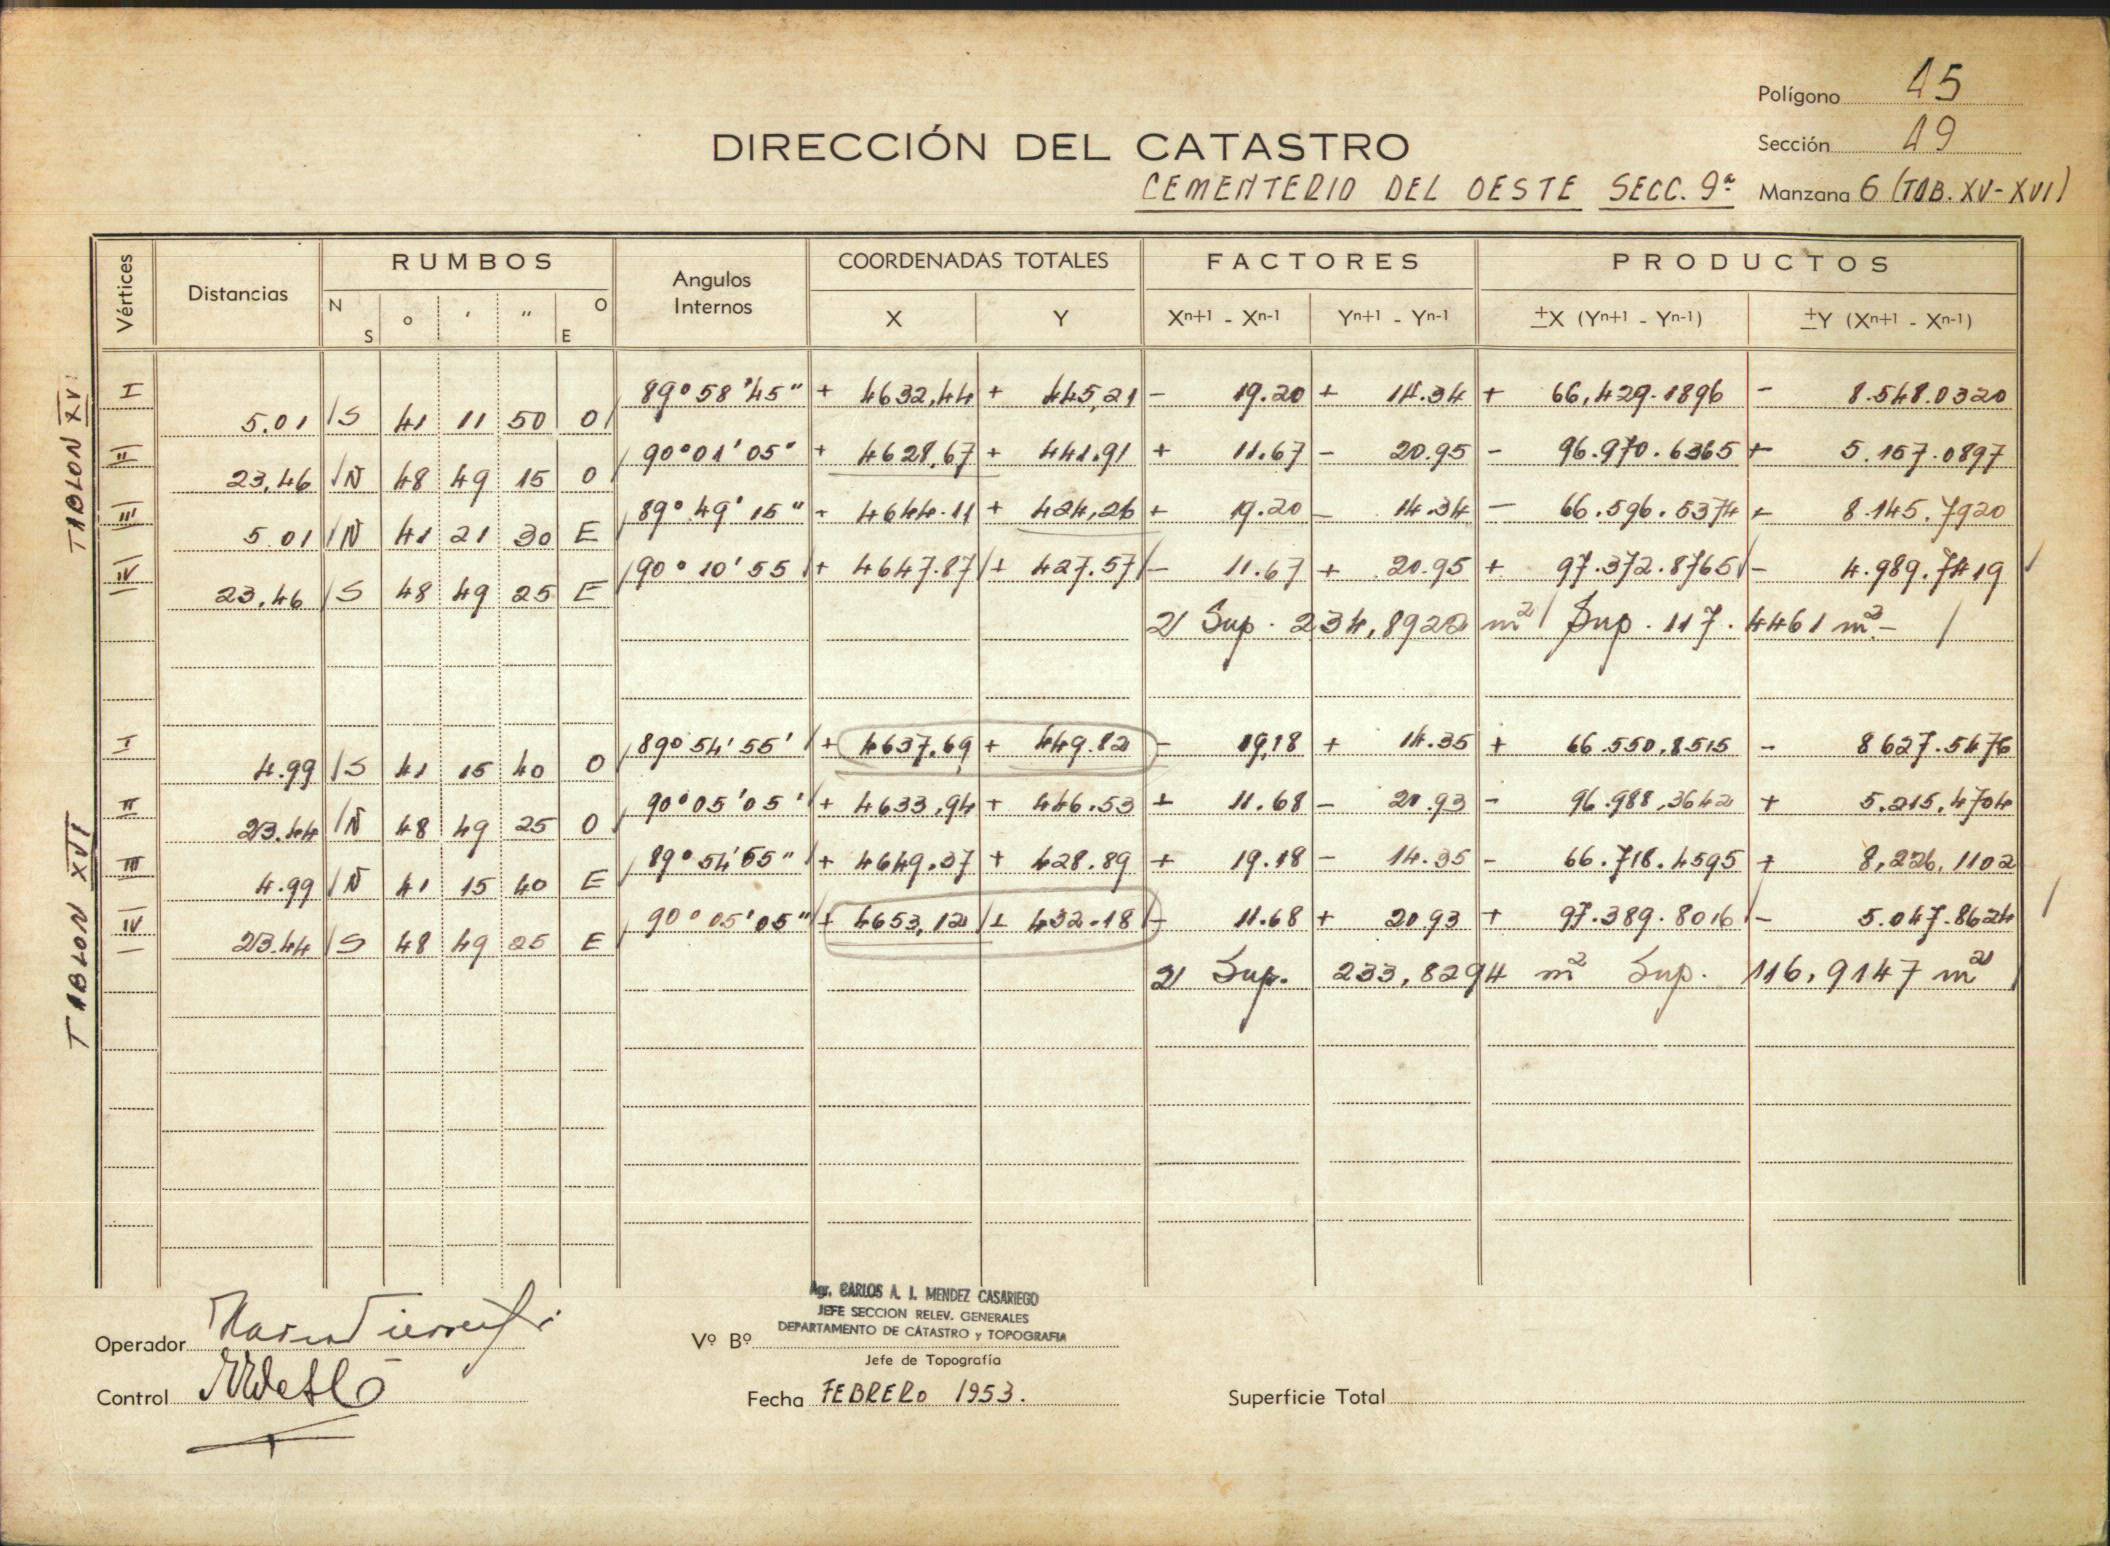 Polígono 15
DIRECCIÓN DEL CATASTRO
Sección 19
CEMENTERIO DEL OESTE SECC. 9ª Manzana 6 (TAB. XV-XVI)
Vértices Distancias RUMBOS Angulos Internos COORDENADAS TOTALES FACTORES PRODUCTOS
N S ° ' " O E X Y Xn+1 - Xn-1 Yn+1 - Yn-1 ±X (Yn+1 - Yn-1) ±Y (Xn+1 - Xn-1)
TABLON XV
I 89°58'45" + 4632,44 + 445,21 - 19.20 + 14.34 + 66,429.1896 - 8.548.0320
5.01 S 41 11 50 O
II 90°01'05" + 4628,67 + 441.91 + 11.67 - 20.95 - 96.970.6365 + 5.157.0897
23,46 N 48 49 15 O
III 89°49'15" + 4644.11 + 424,26 + 19.20 - 14.34 - 66.596.5374 + 8.145.7920
5.01 N 41 21 30 E
IV 90°10'55 + 4647.87 + 427.57 - 11.67 + 20.95 + 97.372.8765 - 4.989.7419
23,46 S 48 49 25 E
2 Sup. 234,8922 m² Sup. 117.4461 m².-
TABLON XVI
I 89°54'55' + 4637.69 + 449.82 - 19,18 + 14.35 + 66.550,8515 - 8627.5476
4.99 S 41 15 40 O
II 90°05'05' + 4633,94 + 446.53 + 11.68 - 20.93 - 96.988,3642 + 5.215,4704
23.44 N 48 49 25 O
III 89°54'55" + 4649.37 + 428.89 + 19.18 - 14.35 - 66.718.4595 + 8,226,1102
4.99 N 41 15 40 E
IV 90°05'05" + 4653,12 + 432.18 - 11.68 + 20.93 + 97.389.8016 - 5.047.8624
23.44 S 48 49 25 E
2 Sup. 233,8294 m² Sup. 116,9147 m²
Agr. CARLOS A. J. MENDEZ CASARIEGO
JEFE SECCION RELEV. GENERALES
DEPARTAMENTO DE CATASTRO y TOPOGRAFIA
Operador
Vº Bº
Jefe de Topografía
Control
Fecha FEBRERO 1953.
Superficie Total